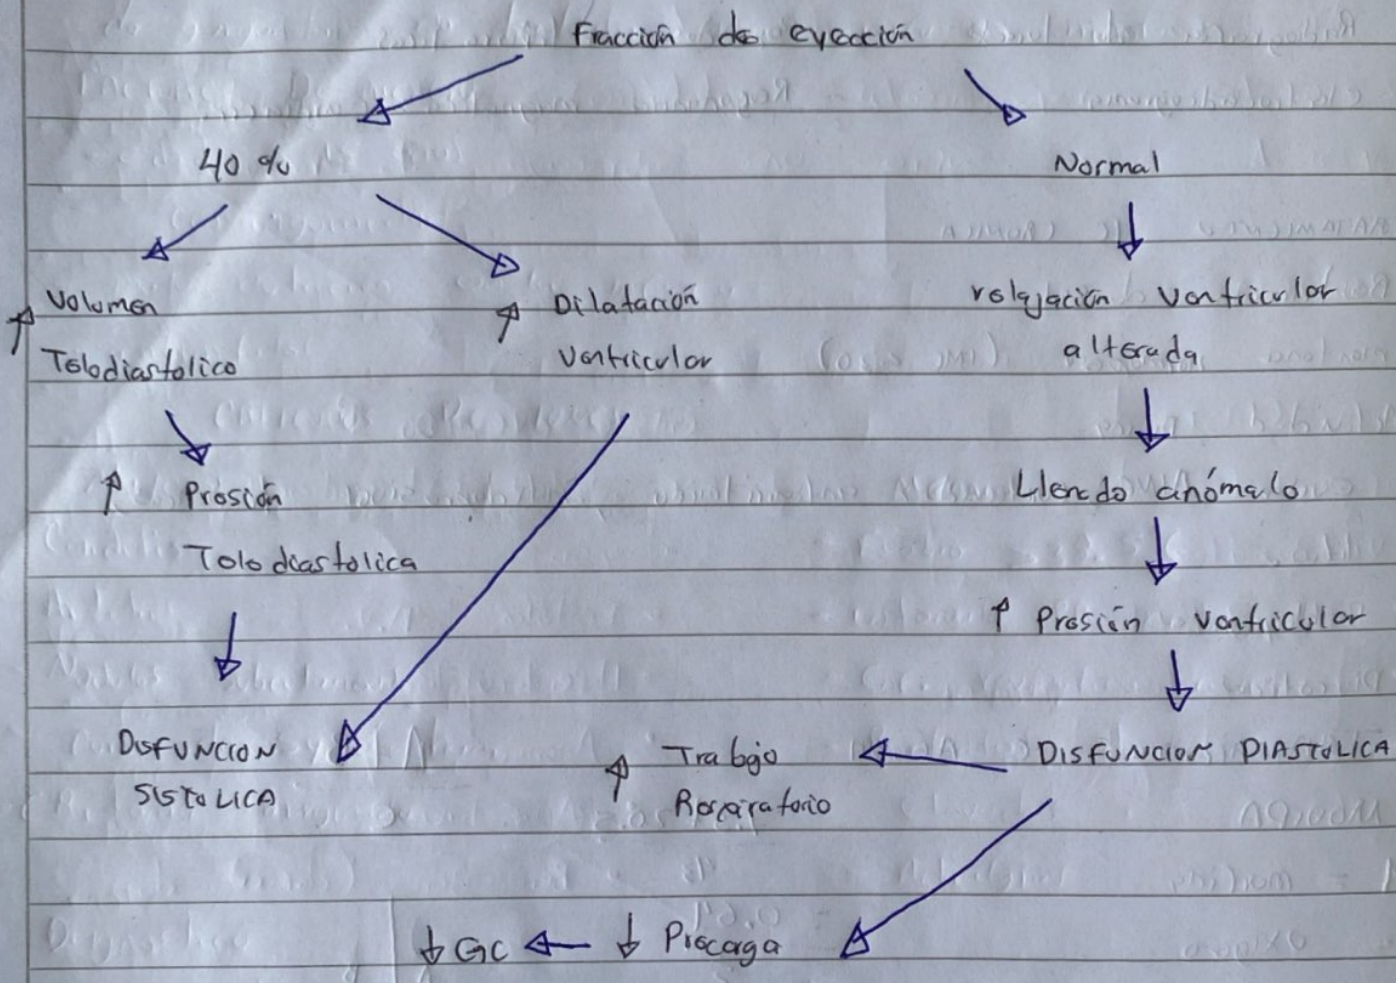 Fracción de eyección
40 %
Normal
↑ Volumen
Telediastolico
↑ Dilatación
Ventricular
relajación Ventricular
alterada
↑ Presión
Telediastolica
Llendo anómalo
↑ Presión ventricular
DISFUNCION
SISTOLICA
↑ Trabajo
Respiratorio
DISFUNCION DIASTOLICA
↓ GC ← ↓ Precaga